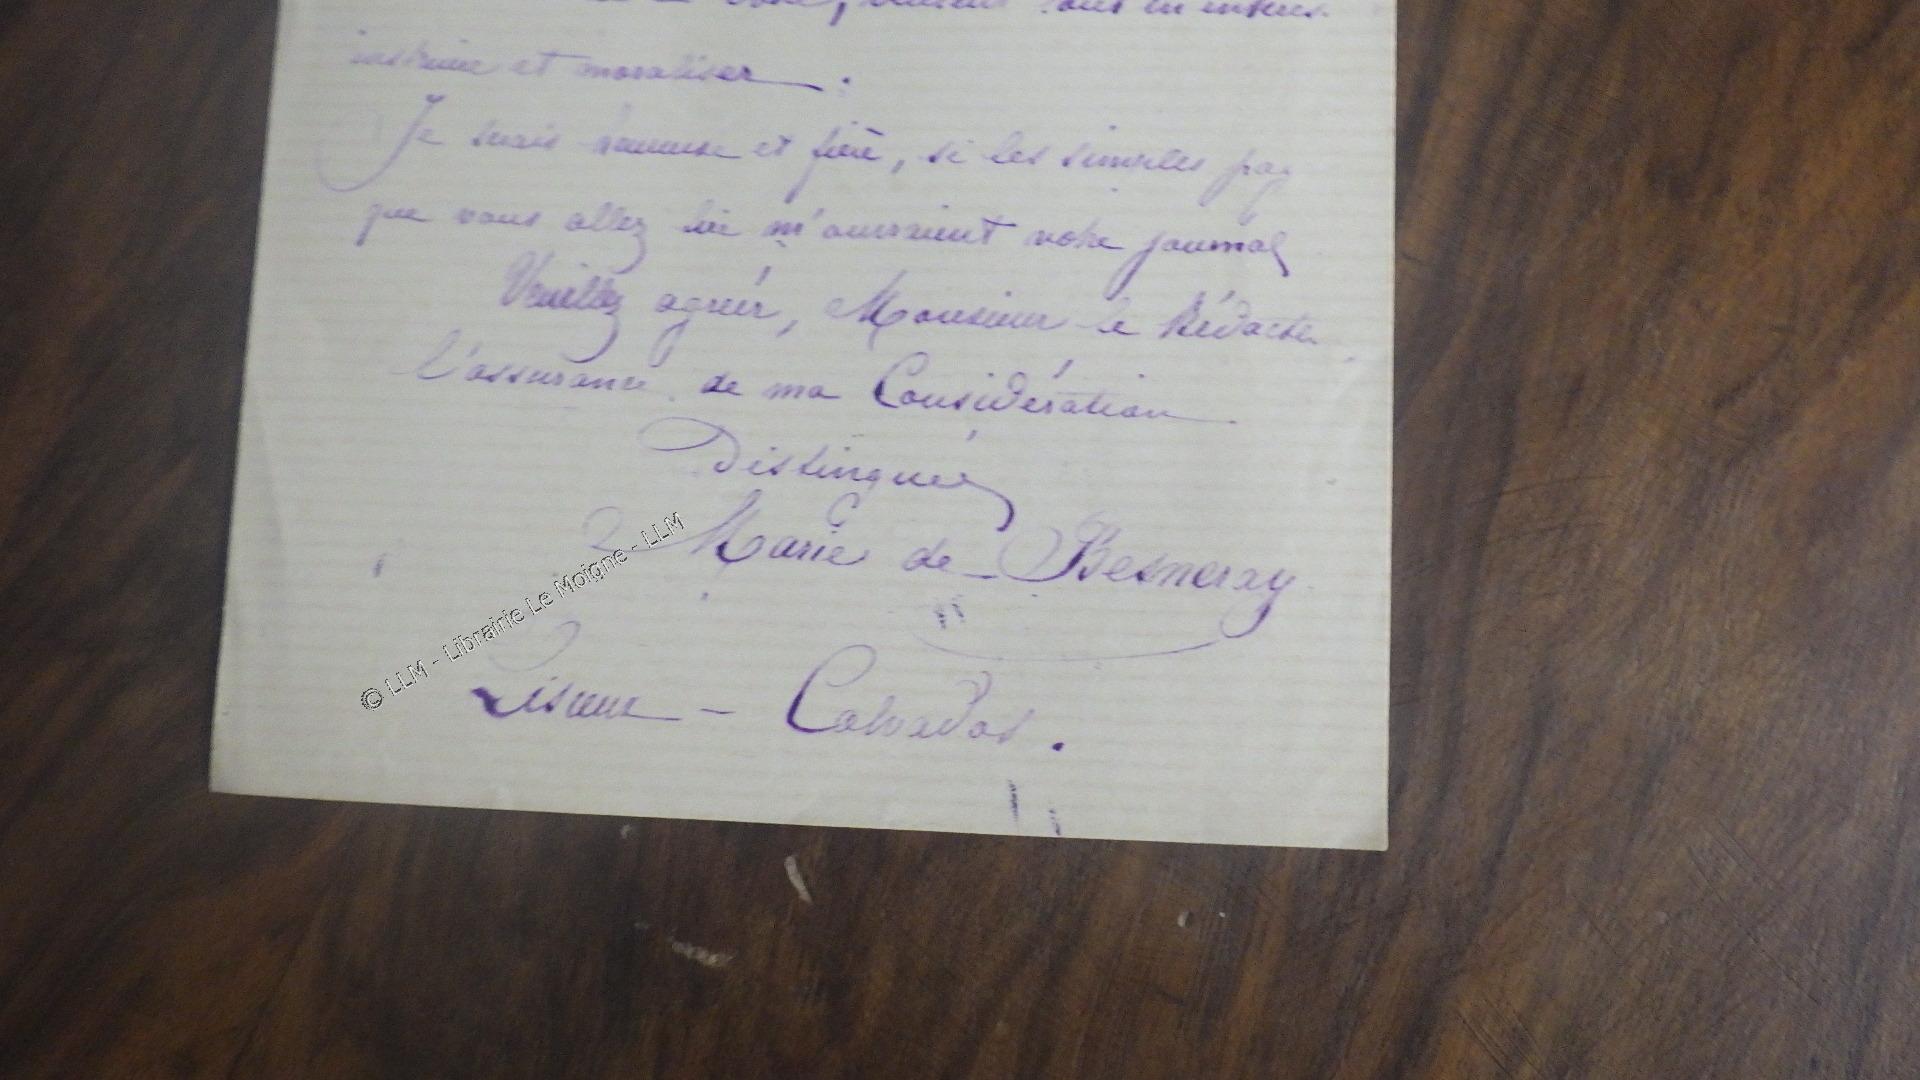 instruire et moraliser.
Je serais heureuse et fière, si les simples pag
que vous allez lire m'ouvraient votre journal
Veuillez agréer, Monsieur le Rédacteu
l'assurance de ma Considération
Distinguée
Marie de Besneray
Lisieux - Calvados.
© LLM - Librairie Le Moigne - LLM